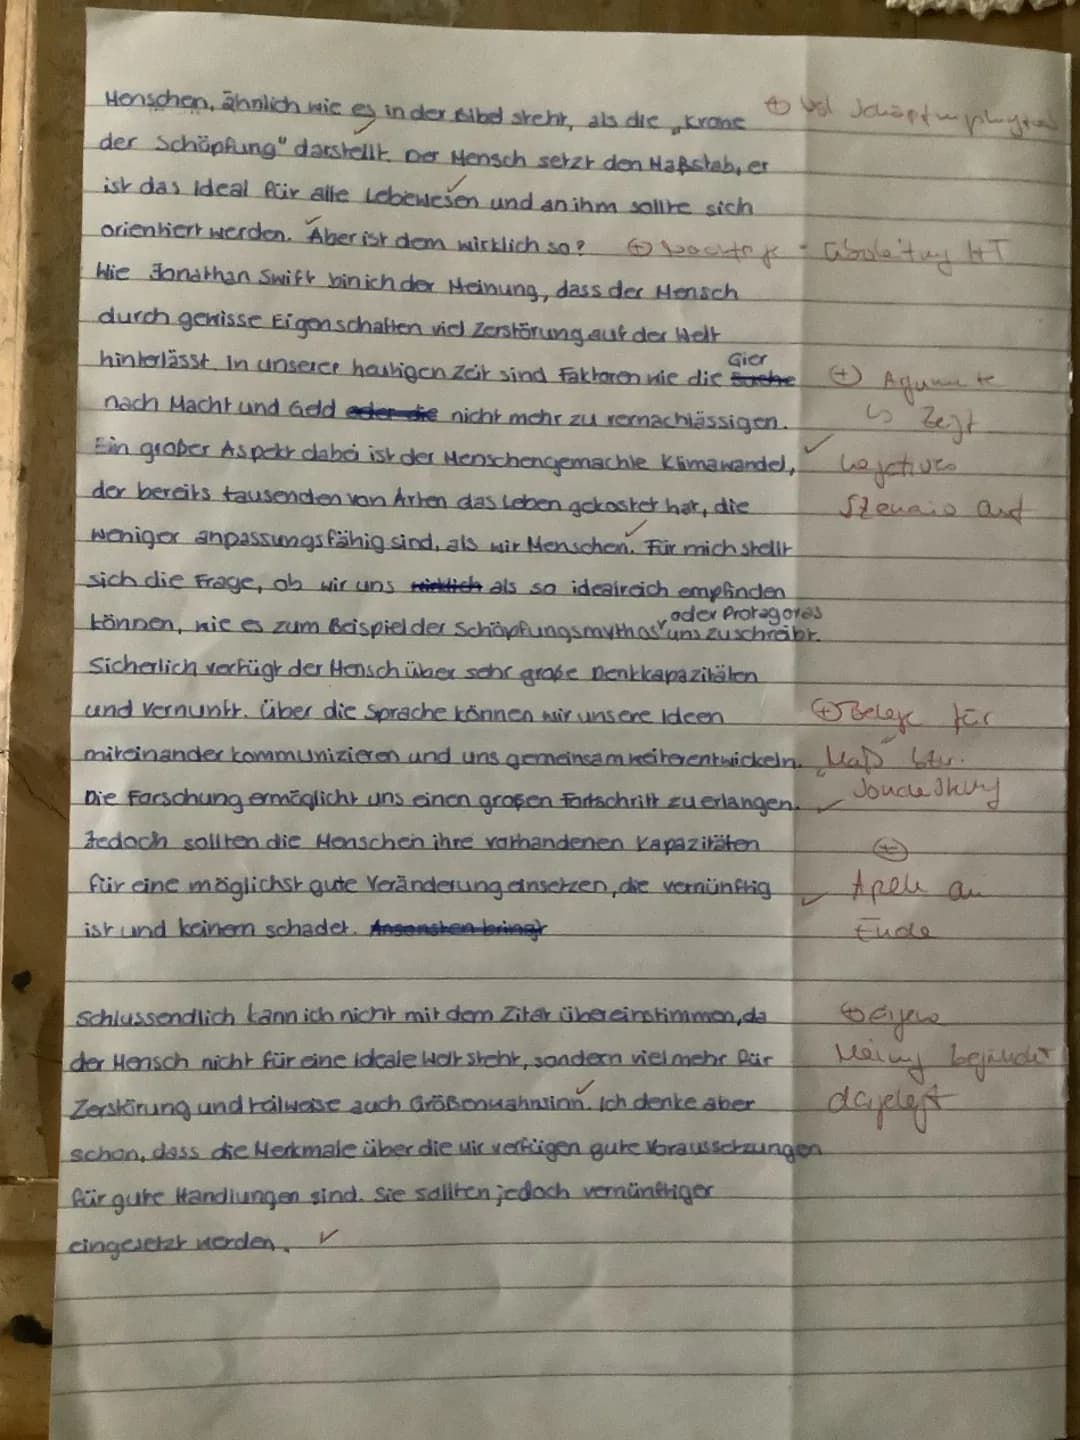 Menschen, ähnlich wie es in der Bibel steht, als die „Krone
der Schöpfung" darstellt. Der Mensch setzt den Maßstab, er
ist das Ideal für alle Lebewesen und an ihm sollte sich
orientiert werden. Aber ist dem wirklich so?
Wie Jonathan Swift bin ich der Meinung, dass der Mensch
durch gewisse Eigenschaften viel Zerstörung auf der Welt
Gier
hinterlässt. In unserer heutigen Zeit sind Faktoren wie die Suche
⊕ Argumente
nach Macht und Geld oder die nicht mehr zu vernachlässigen.
↳ Zeigt
Ein großer Aspekt dabei ist der Menschengemachte Klimawandel,
der bereits tausenden von Arten das Leben gekostet hat, die
Szenario auf
weniger anpassungsfähig sind, als wir Menschen. Für mich stellt
sich die Frage, ob wir uns wirklich als so idealreich empfinden
oder Protagoras
können, wie es zum Beispiel der Schöpfungsmythos uns zuschreibt.
Sicherlich verfügt der Mensch über sehr große Denkkapazitäten
und Vernunft. Über die Sprache können wir unsere Ideen
⊕ Belege für
miteinander kommunizieren und uns gemeinsam weiterentwickeln.
Maß bzw.
Die Forschung ermöglicht uns einen großen Fortschritt zu erlangen.
Sonderstellung
Jedoch sollten die Menschen ihre vorhandenen Kapazitäten
⊕
für eine möglichst gute Veränderung einsetzen, die vernünftig
Apell am
ist und keinem schadet. Ansonsten bringt
Ende
Schlussendlich kann ich nicht mit dem Zitat übereinstimmen, da
⊕ eigene
der Mensch nicht für eine ideale Welt steht, sondern viel mehr für
Meinung begründet
Zerstörung und teilweise auch Größenwahnsinn. Ich denke aber
dargelegt
schon, dass die Merkmale über die wir verfügen gute Voraussetzungen
für gute Handlungen sind. Sie sollten jedoch vernünftiger
eingesetzt werden.